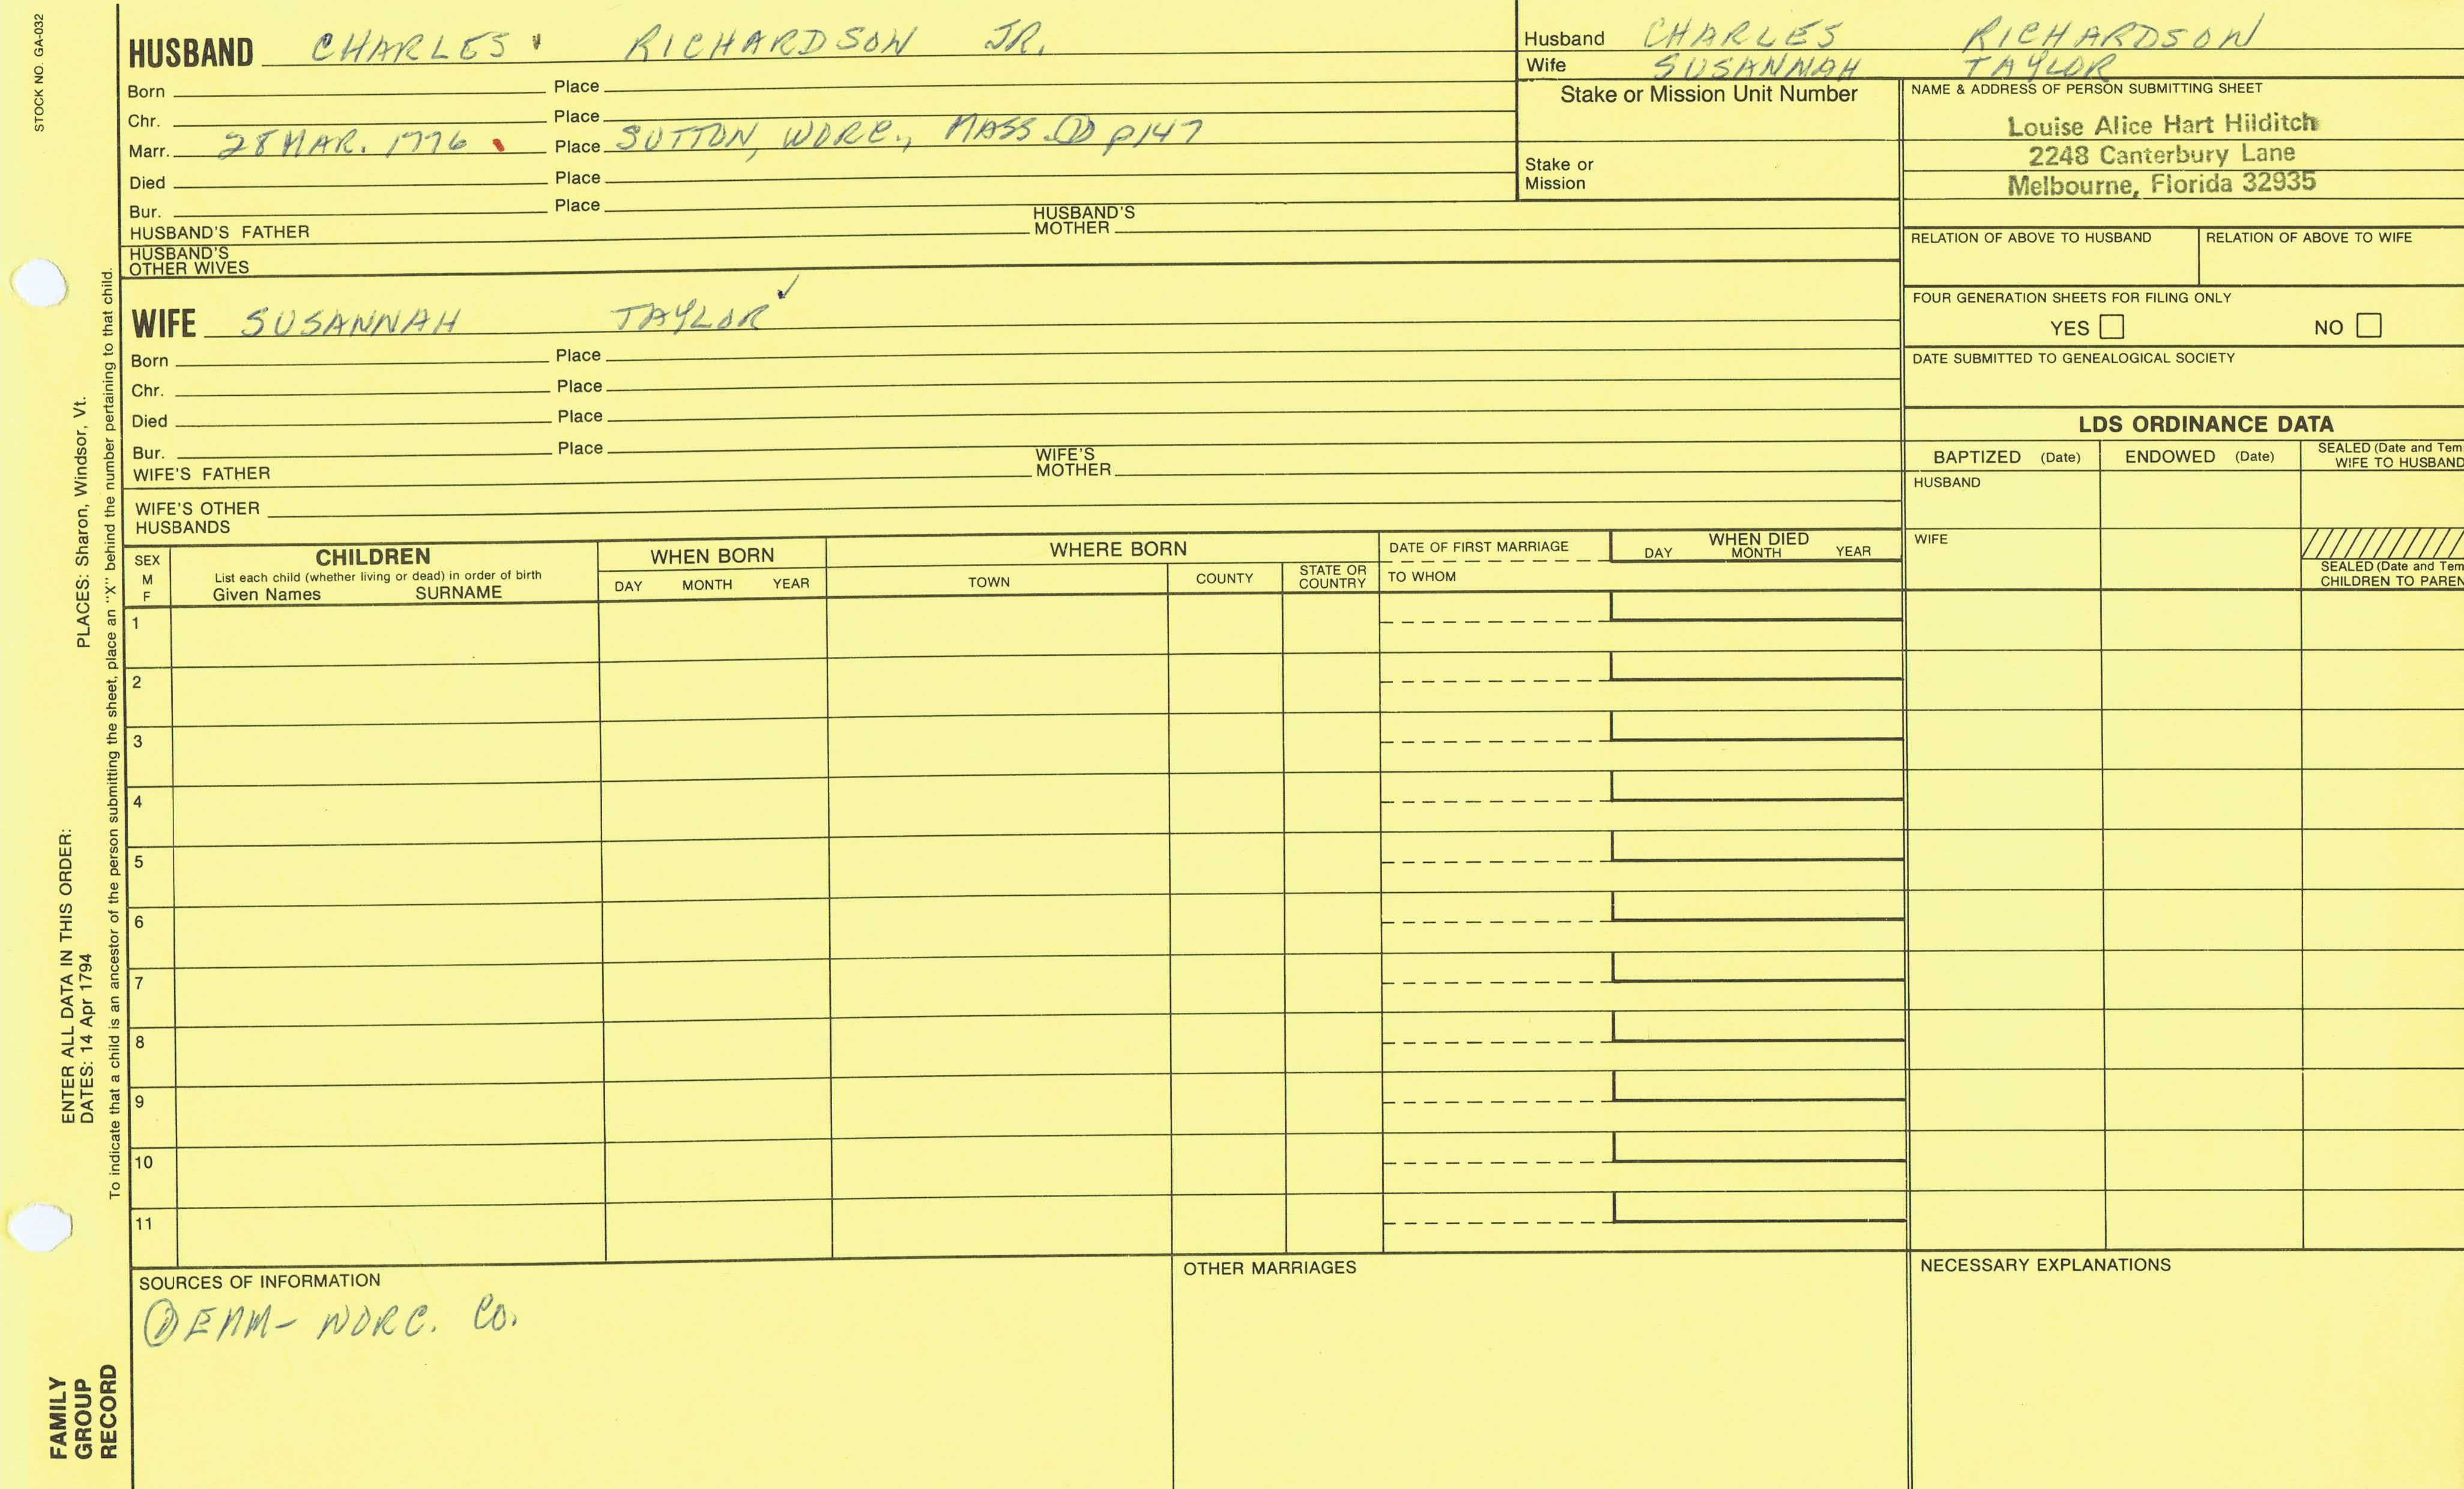 STOCK NO. GA-032
HUSBAND CHARLES RICHARDSON JR.
Born Place
Chr. Place
Marr. 28 MAR. 1776 Place SUTTON, WORC., MASS. ① p147
Died Place
Bur. Place
HUSBAND'S FATHER HUSBAND'S MOTHER
HUSBAND'S OTHER WIVES
Husband CHARLES RICHARDSON
Wife SUSANNAH TAYLOR
Stake or Mission Unit Number
Stake or
Mission
NAME & ADDRESS OF PERSON SUBMITTING SHEET
Louise Alice Hart Hilditch
2248 Canterbury Lane
Melbourne, Florida 32935
RELATION OF ABOVE TO HUSBAND RELATION OF ABOVE TO WIFE
FOUR GENERATION SHEETS FOR FILING ONLY
YES NO
DATE SUBMITTED TO GENEALOGICAL SOCIETY
WIFE SUSANNAH TAYLOR
Born Place
Chr. Place
Died Place
Bur. Place
WIFE'S FATHER WIFE'S MOTHER
WIFE'S OTHER
HUSBANDS
LDS ORDINANCE DATA
BAPTIZED (Date) ENDOWED (Date) SEALED (Date and Tem
WIFE TO HUSBAND
HUSBAND
WIFE
SEALED (Date and Tem
CHILDREN TO PAREN
SEX
M
F
CHILDREN
List each child (whether living or dead) in order of birth
Given Names SURNAME
WHEN BORN
DAY MONTH YEAR
WHERE BORN
TOWN COUNTY STATE OR COUNTRY
DATE OF FIRST MARRIAGE
TO WHOM
WHEN DIED
DAY MONTH YEAR
1
2
3
4
5
6
7
8
9
10
11
SOURCES OF INFORMATION
① EMM- WORC. CO.
OTHER MARRIAGES
NECESSARY EXPLANATIONS
PLACES: Sharon, Windsor, Vt.
ENTER ALL DATA IN THIS ORDER:
DATES: 14 Apr 1794
To indicate that a child is an ancestor of the person submitting the sheet, place an "X" behind the number pertaining to that child.
FAMILY
GROUP
RECORD